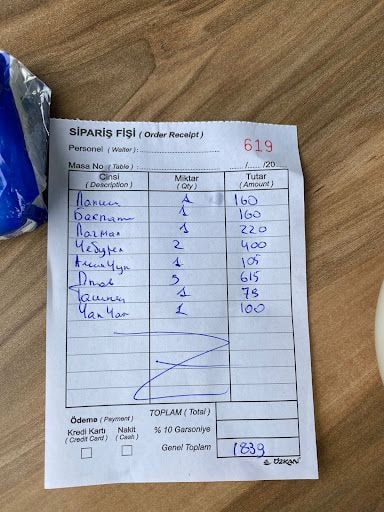 SİPARİŞ FİŞİ ( Order Receipt )
Personel ( Waiter ) :
619
Masa No ( Table ) : ...../...../20
Cinsi ( Description ) Miktar ( Qty ) Tutar ( Amount )
1 160
1 160
Лагман 1 220
Чебурек 2 400
АчиЧук 1 105
Плов 5 615
1 79
ЧакЧак 1 100
Ödeme ( Payment ) TOPLAM ( Total )
Kredi Kartı ( Credit Card ) Nakit ( Cash ) % 10 Garsoniye
Genel Toplam 1839
ÖZKAN